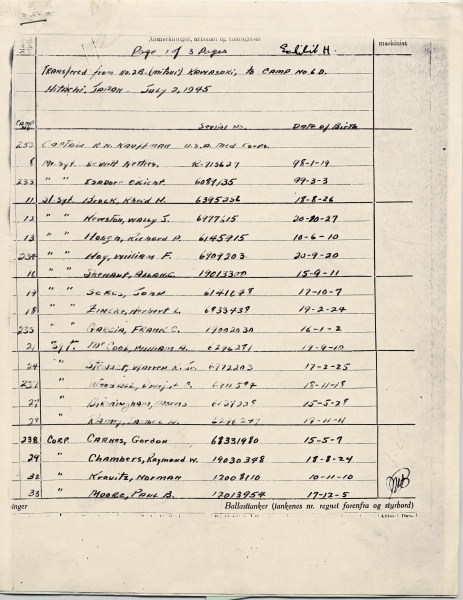 Anmerkninger, arbeider og unntagelser
Page 1 of 3 Pages Exhibit H. maskinist
Transfered from No. 2B. (mitsui) Kawasaki, to Camp No. 6 D.
Hitachi, Japan - July 2, 1945
Camp No. Serial No. Date of Birth
253 Captain N.N. Kauffman U.S.A. Med Corps.
8 M. Sgt. Dewitt R-113627 98-1-19
233 " " Isadore 6089135 99-3-3
11 St. Sgt Brock, Kheid H. 6395256 18-8-26
12 " " Newston, Wally J. 6977515 20-10-27
13 " " Hough, Richard P. 6145915 10-6-10
234 " " Hoy, William F. 6909203 20-9-20
16 " " 19013300 15-9-11
19 " " John 6141648 17-10-7
18 " " Zincke, Herbert L. 6933439 19-2-24
235 " " Garcia, Frank C. 19002030 16-1-2
21 Sgt. McCool, William H. 6296281 19-9-10
24 " Warren 6972203 17-2-25
" 18-11-18
27 " Birmingham, 15-5-28
" 19-11-11
238 Corp Carnes, Gordon 68331980 15-5-7
29 " Chambers, Raymond W. 19030348 18-8-24
32 " Kravitz, Norman 12008110 10-11-10
33 " Moore, Paul B. 12013954 17-12-5
inger Ballasttanker (tankenes nr. regnet forenfra og styrbord)